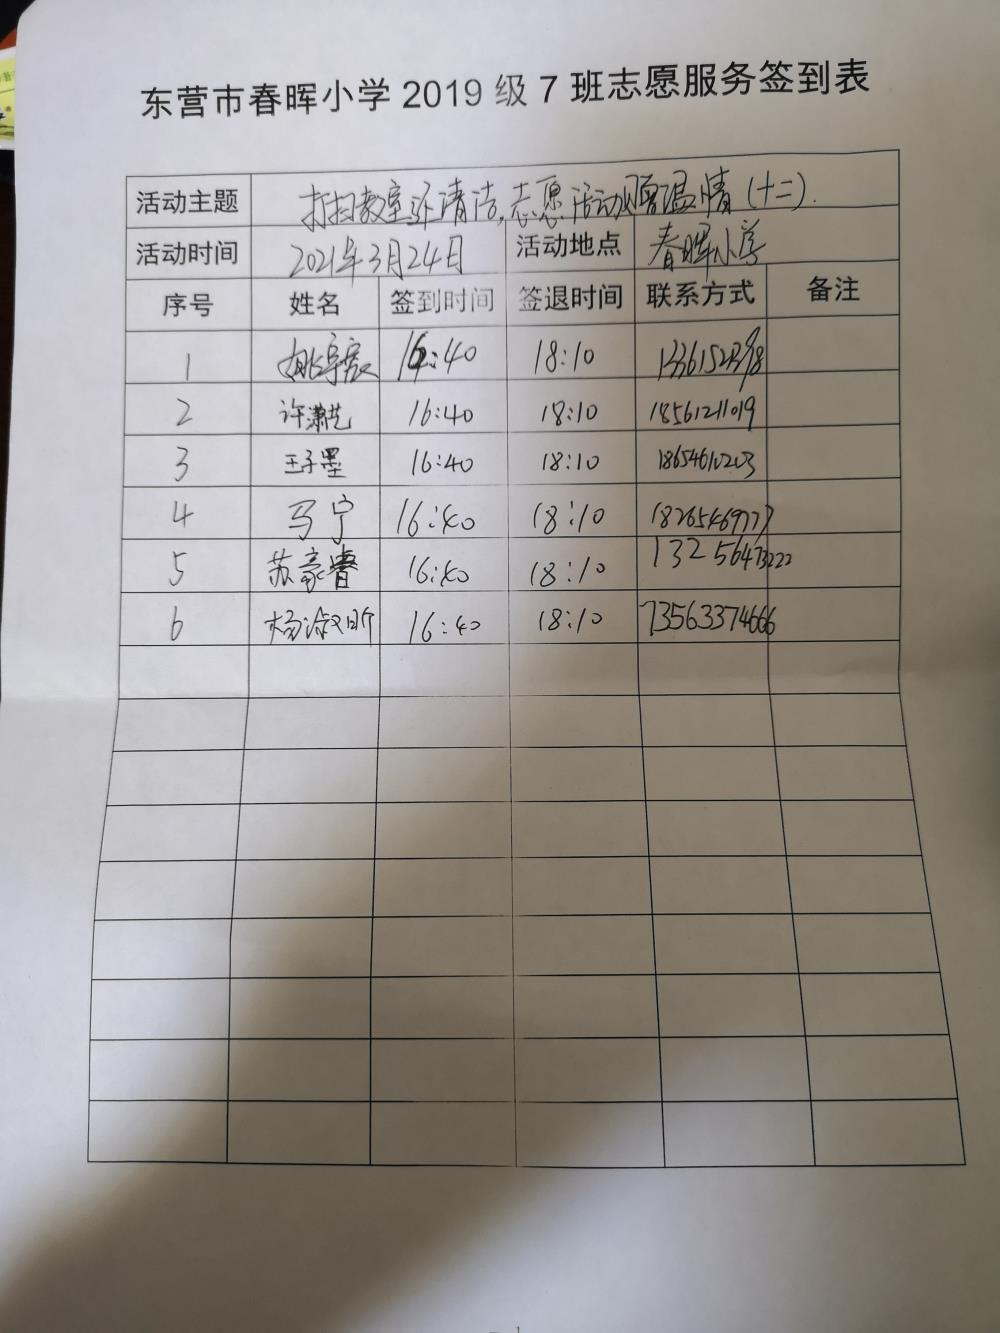 东营市春晖小学2019级7班志愿服务签到表
活动主题 打扫教室还清洁,志愿活动暖温情(十二).
活动时间 2021年3月24日 活动地点 春晖小学
序号 姓名 签到时间 签退时间 联系方式 备注
1 16:40 18:10
2 许潇艺 16:40 18:10 18561211019
3 王子墨 16:40 18:10 18654610203
4 马宁 16:40 18:10 18265469777
5 苏豪睿 16:40 18:10 13256473222
6 16:40 18:10 13563374666